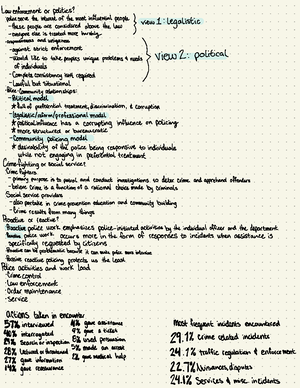 Law enforcement or politics?
-police serve the interest of the most influential people
-these people are considered above the law
-anyone else is treated more harshly
view 1: legalistic
-responsiveness and uniqueness
-against strict enforcement
-would like to take peoples unique problems & needs
of individuals
view 2: political
-Complete consistency isnt required
-Lawful but situational
Police-Community relationships:
-Political model
*full of preferential treatment, discrimination, & corruption
-Legalistic/reform/professional model
*political influence has a corrupting influence on policing
*more structured or bureaucratic
-Community policing model
*desirability of the police being responsive to individuals
while not engaging in preferential treatment
Crime-fighting or social service?
Crime fighters
-primary purpose is to patrol and conduct investigations to deter crime and apprehend offenders
-believe crime is a function of a rational choice made by criminals
Social service providers
-also partake in crime prevention education and community building
-Crime results from many things
Proactive or reactive?
-Proactive police work emphasizes police-initiated activities by the individual officer and the department
-Reactive police work occurs more in the form of responses to incidents when assistance is
specifically requested by citizens
-Proactive can be problematic because it can make police more intrusive
-Passive reactive policing protects us the least
Police activities and work load
-Crime control
-Law enforcement
-Order maintenance
-Service
actions taken in encounter
57% interviewed
40% interrogated
29% Search or inspection
28% lectured or threatened
27% gave information
14% gave reassurance
11% gave assistance
9% gave a ticket
8% used persuasion
5% made an arrest
2% gave medical help
Most frequent incidents encountered
29.1% crime related incidents
24.1% traffic regulation & enforcement
22.7% Nuisances, disputes
24.1% Services & misc. incidents